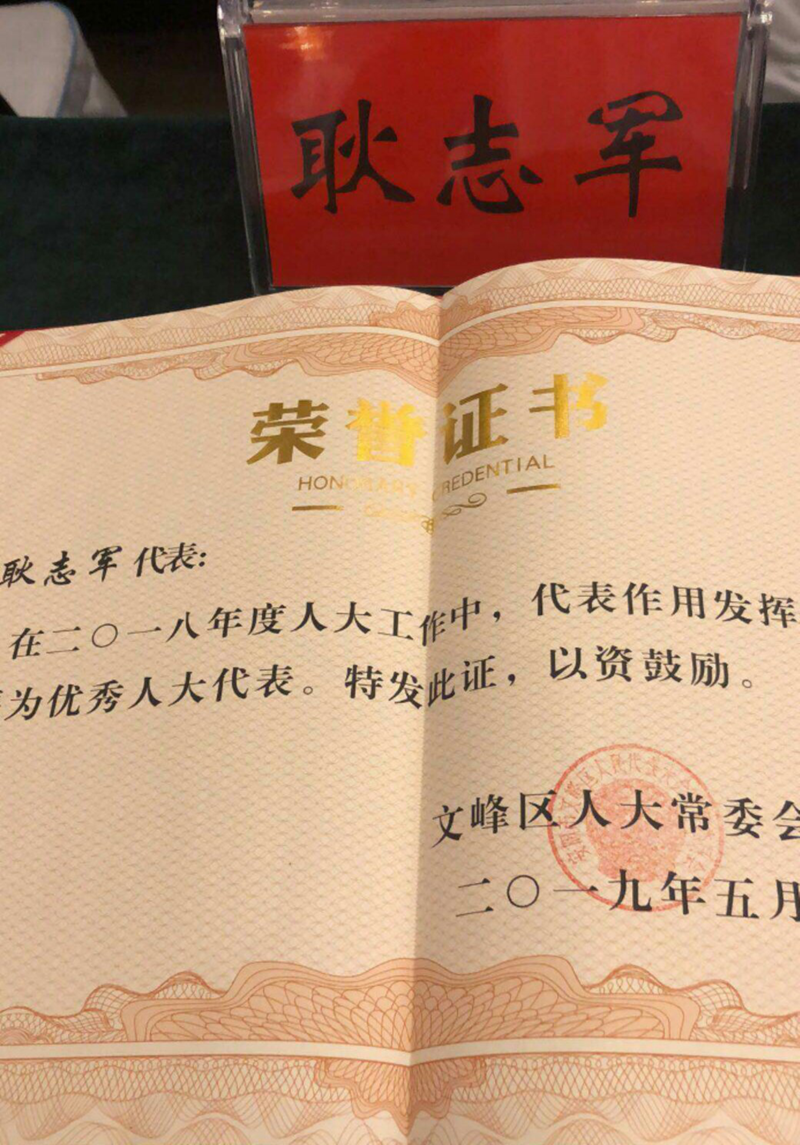 耿志军
荣誉证书
CREDENTIAL
耿志军代表:
在二〇一八年度人大工作中，代表作用发挥
为优秀人大代表。特发此证，以资鼓励。
文峰区人大常委会
二〇一九年五月